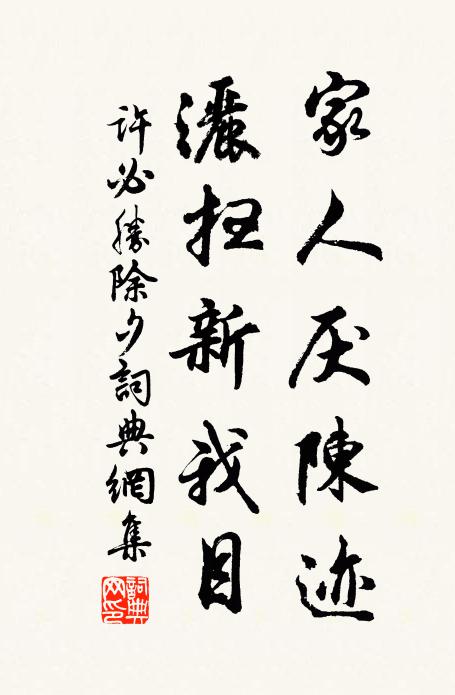 家人厌陳迹
灑扫新我目
許必勝除夕詞典網集
詞典网印